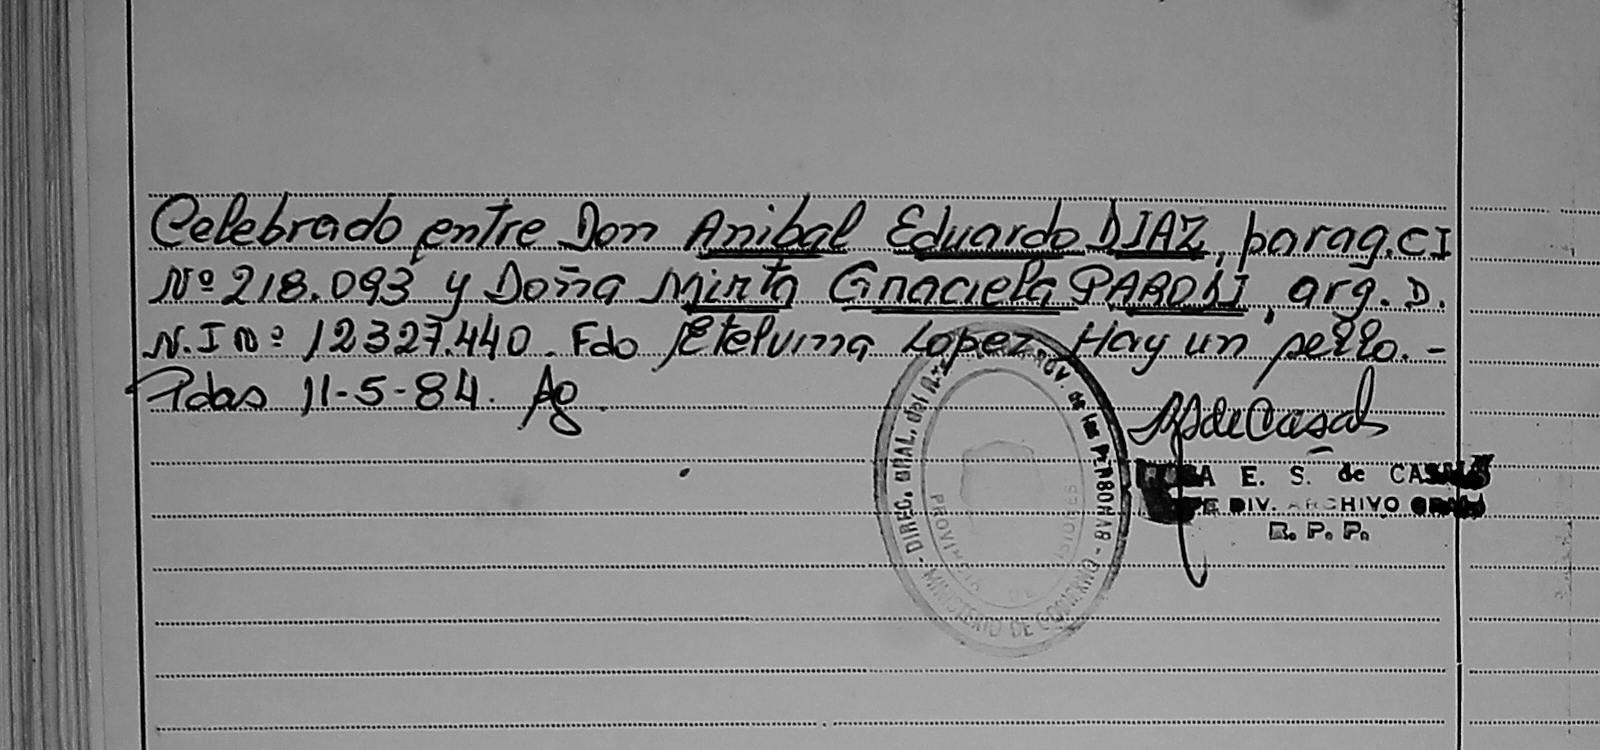 Celebrado entre Don Anibal Eduardo DIAZ, parag. CI
Nº 218.093 y Doña Mirta Graciela PARDI, arg. D.
N.I Nº 12327.440. Fdo Etelvina Lopez. Hay un sello.-
Pdas 11-5-84. Ag.
DIREC. GRAL. del PROV. de las PERSONAS - MINISTERIO DE GOBIERNO -
PROVINCIA DE MISIONES
E. S. de
DIV. ARCHIVO
R. P. P.